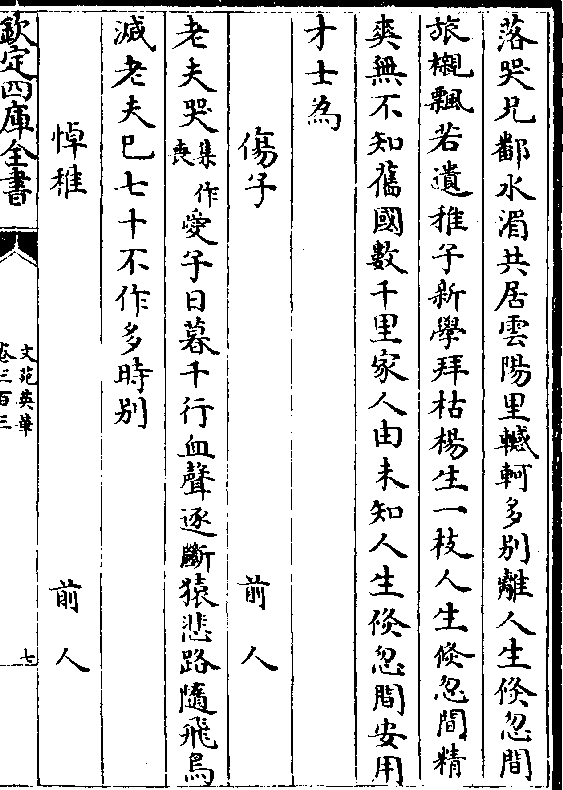 落哭兄鄱水湄共居雲陽里轗軻多别離人生倏忽間
旅櫬飄若遺稚子新學拜枯楊生一枝人生倏忽間精
爽無不知舊國數千里家人由未知人生倏忽間安用
才士為
傷子　前人
老夫哭集作喪愛子日暮千行血聲逐斷猿悲路隨飛鳥
滅老夫巳七十不作多時别
悼稚　前人
欽定四庫全書
文苑英華
卷三百三
七